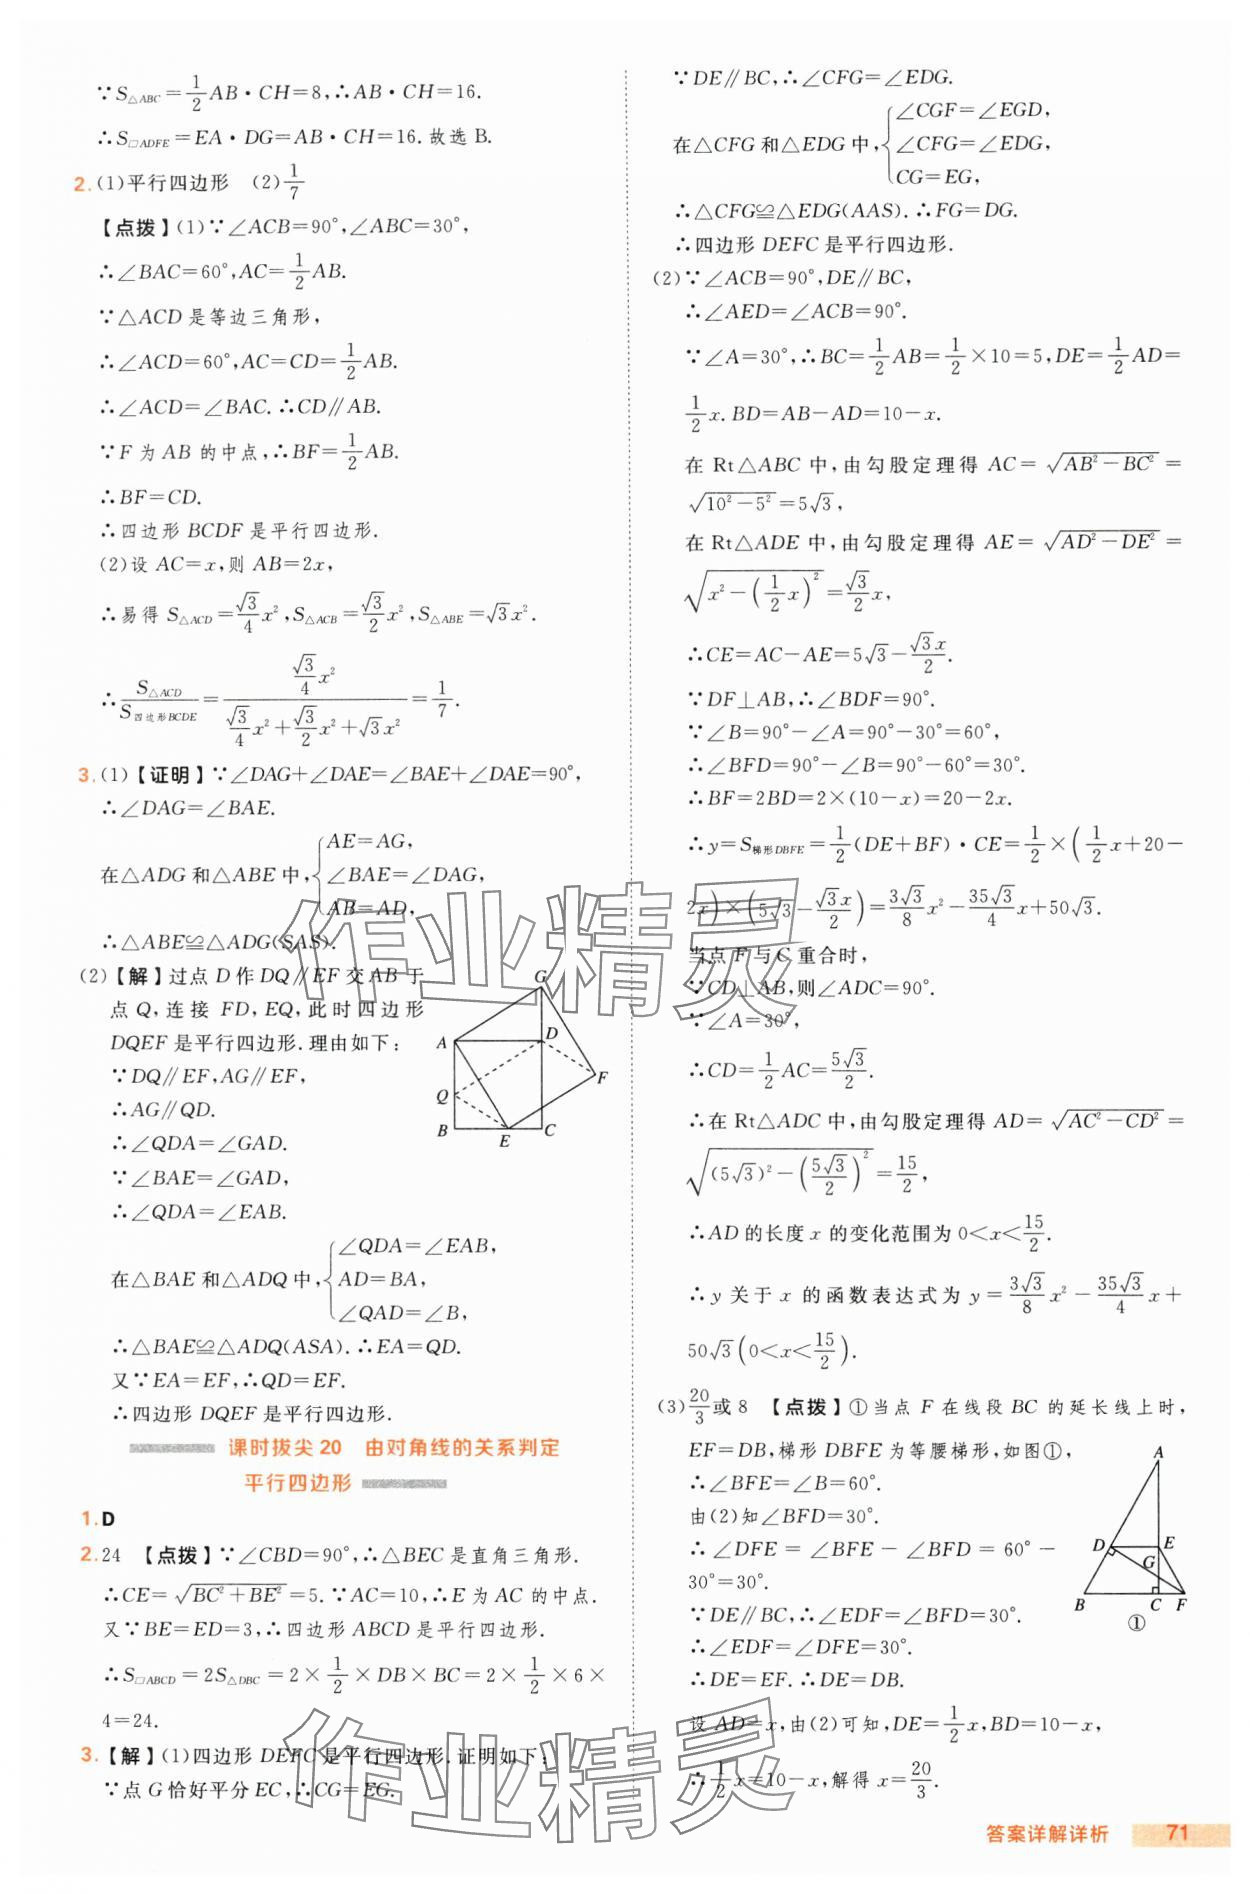 ∵S△ABC=1/2AB·CH=8,∴AB·CH=16.
∴S□ADFE=EA·DG=AB·CH=16.故选 B.
2.(1)平行四边形 (2)1/7
【点拨】(1)∵∠ACB=90°,∠ABC=30°,
∴∠BAC=60°,AC=1/2AB.
∵△ACD 是等边三角形,
∴∠ACD=60°,AC=CD=1/2AB.
∴∠ACD=∠BAC.∴CD∥AB.
∵F 为 AB 的中点,∴BF=1/2AB.
∴BF=CD.
∴四边形 BCDF 是平行四边形.
(2)设 AC=x,则 AB=2x,
∴易得 S△ACD=√3/4x²,S△ACB=√3/2x²,S△ABE=√3x².
∴S△ACD/S四边形BCDE=(√3/4x²)/(√3/4x²+√3/2x²+√3x²)=1/7.
3.(1)【证明】∵∠DAG+∠DAE=∠BAE+∠DAE=90°,
∴∠DAG=∠BAE.
在△ADG 和△ABE 中,{AE=AG,
∠BAE=∠DAG,
AB=AD,
∴△ABE≌△ADG(SAS).
(2)【解】过点 D 作 DQ∥EF 交 AB 于
点 Q,连接 FD,EQ,此时四边形
DQEF 是平行四边形.理由如下:
∵DQ∥EF,AG∥EF,
∴AG∥QD.
∴∠QDA=∠GAD.
∵∠BAE=∠GAD,
∴∠QDA=∠EAB.
在△BAE 和△ADQ 中,{∠QDA=∠EAB,
AD=BA,
∠QAD=∠B,
∴△BAE≌△ADQ(ASA).∴EA=QD.
又∵EA=EF,∴QD=EF.
∴四边形 DQEF 是平行四边形.
G
A
D
F
Q
B
E
C
课时拔尖 20 由对角线的关系判定
平行四边形
1.D
2.24 【点拨】∵∠CBD=90°,∴△BEC 是直角三角形.
∴CE=√(BC²+BE²)=5.∵AC=10,∴E 为 AC 的中点.
又∵BE=ED=3,∴四边形 ABCD 是平行四边形.
∴S□ABCD=2S△DBC=2×1/2×DB×BC=2×1/2×6×
4=24.
3.【解】(1)四边形 DEFC 是平行四边形.证明如下:
∵点 G 恰好平分 EC,∴CG=EG.
∵DE∥BC,∴∠CFG=∠EDG.
在△CFG 和△EDG 中,{∠CGF=∠EGD,
∠CFG=∠EDG,
CG=EG,
∴△CFG≌△EDG(AAS).∴FG=DG.
∴四边形 DEFC 是平行四边形.
(2)∵∠ACB=90°,DE∥BC,
∴∠AED=∠ACB=90°.
∵∠A=30°,∴BC=1/2AB=1/2×10=5,DE=1/2AD=
1/2x.BD=AB-AD=10-x.
在 Rt△ABC 中,由勾股定理得 AC=√(AB²-BC²)=
√(10²-5²)=5√3,
在 Rt△ADE 中,由勾股定理得 AE=√(AD²-DE²)=
√(x²-(1/2x)²)=√3/2x,
∴CE=AC-AE=5√3-√3x/2.
∵DF⊥AB,∴∠BDF=90°.
∵∠B=90°-∠A=90°-30°=60°,
∴∠BFD=90°-∠B=90°-60°=30°.
∴BF=2BD=2×(10-x)=20-2x.
∴y=S梯形DBFE=1/2(DE+BF)·CE=1/2×(1/2x+20-
2x)×(5√3-√3x/2)=3√3/8x²-35√3/4x+50√3.
当点 F 与 C 重合时,
∵CD⊥AB,则∠ADC=90°.
∵∠A=30°,
∴CD=1/2AC=5√3/2.
∴在 Rt△ADC 中,由勾股定理得 AD=√(AC²-CD²)=
√((5√3)²-(5√3/2)²)=15/2,
∴AD 的长度 x 的变化范围为 0<x<15/2.
∴y 关于 x 的函数表达式为 y=3√3/8x²-35√3/4x+
50√3(0<x<15/2).
(3)20/3或 8 【点拨】①当点 F 在线段 BC 的延长线上时,
EF=DB,梯形 DBFE 为等腰梯形,如图①,
∴∠BFE=∠B=60°.
由(2)知∠BFD=30°.
∴∠DFE=∠BFE-∠BFD=60°-
30°=30°.
∵DE∥BC,∴∠EDF=∠BFD=30°.
∴∠EDF=∠DFE=30°.
∴DE=EF.∴DE=DB.
设 AD=x,由(2)可知,DE=1/2x,BD=10-x,
∴1/2x=10-x,解得 x=20/3.
A
D
E
G
B
C
F
①
答案详解详析 71
作业精灵
作业精灵